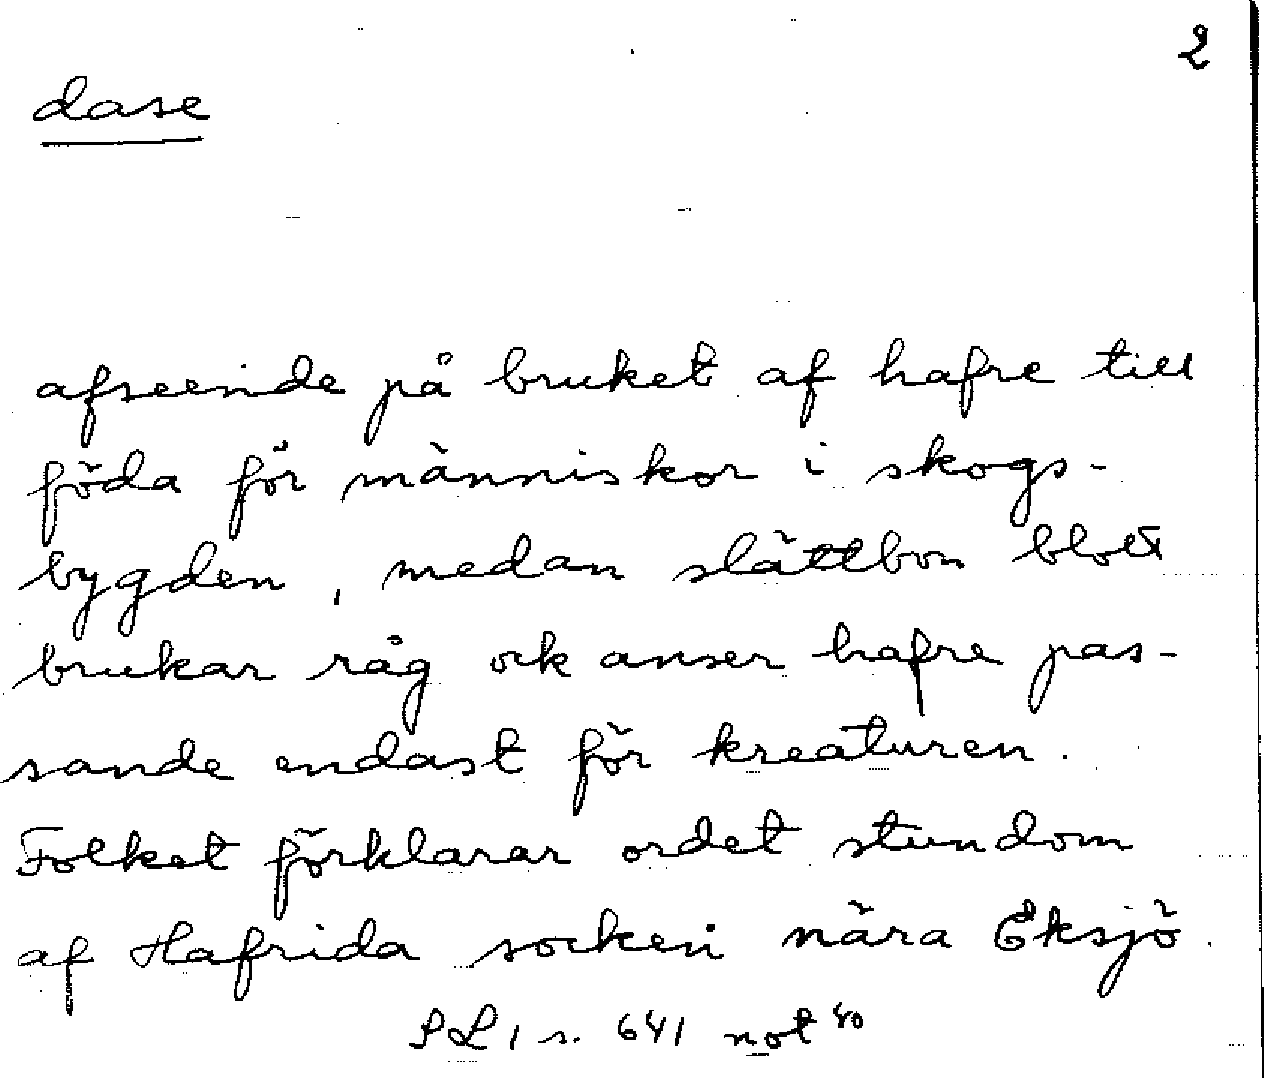 2
dase
afseende på bruket af hafre till
föda för människor i skogs-
bygden, medan slättbon blott
brukar råg ock anser hafre pas-
sande endast för kreaturen.
Folket förklarar ordet stundom
af Hafrida socken nära Eksjö.
PL 1 s. 641 not 40